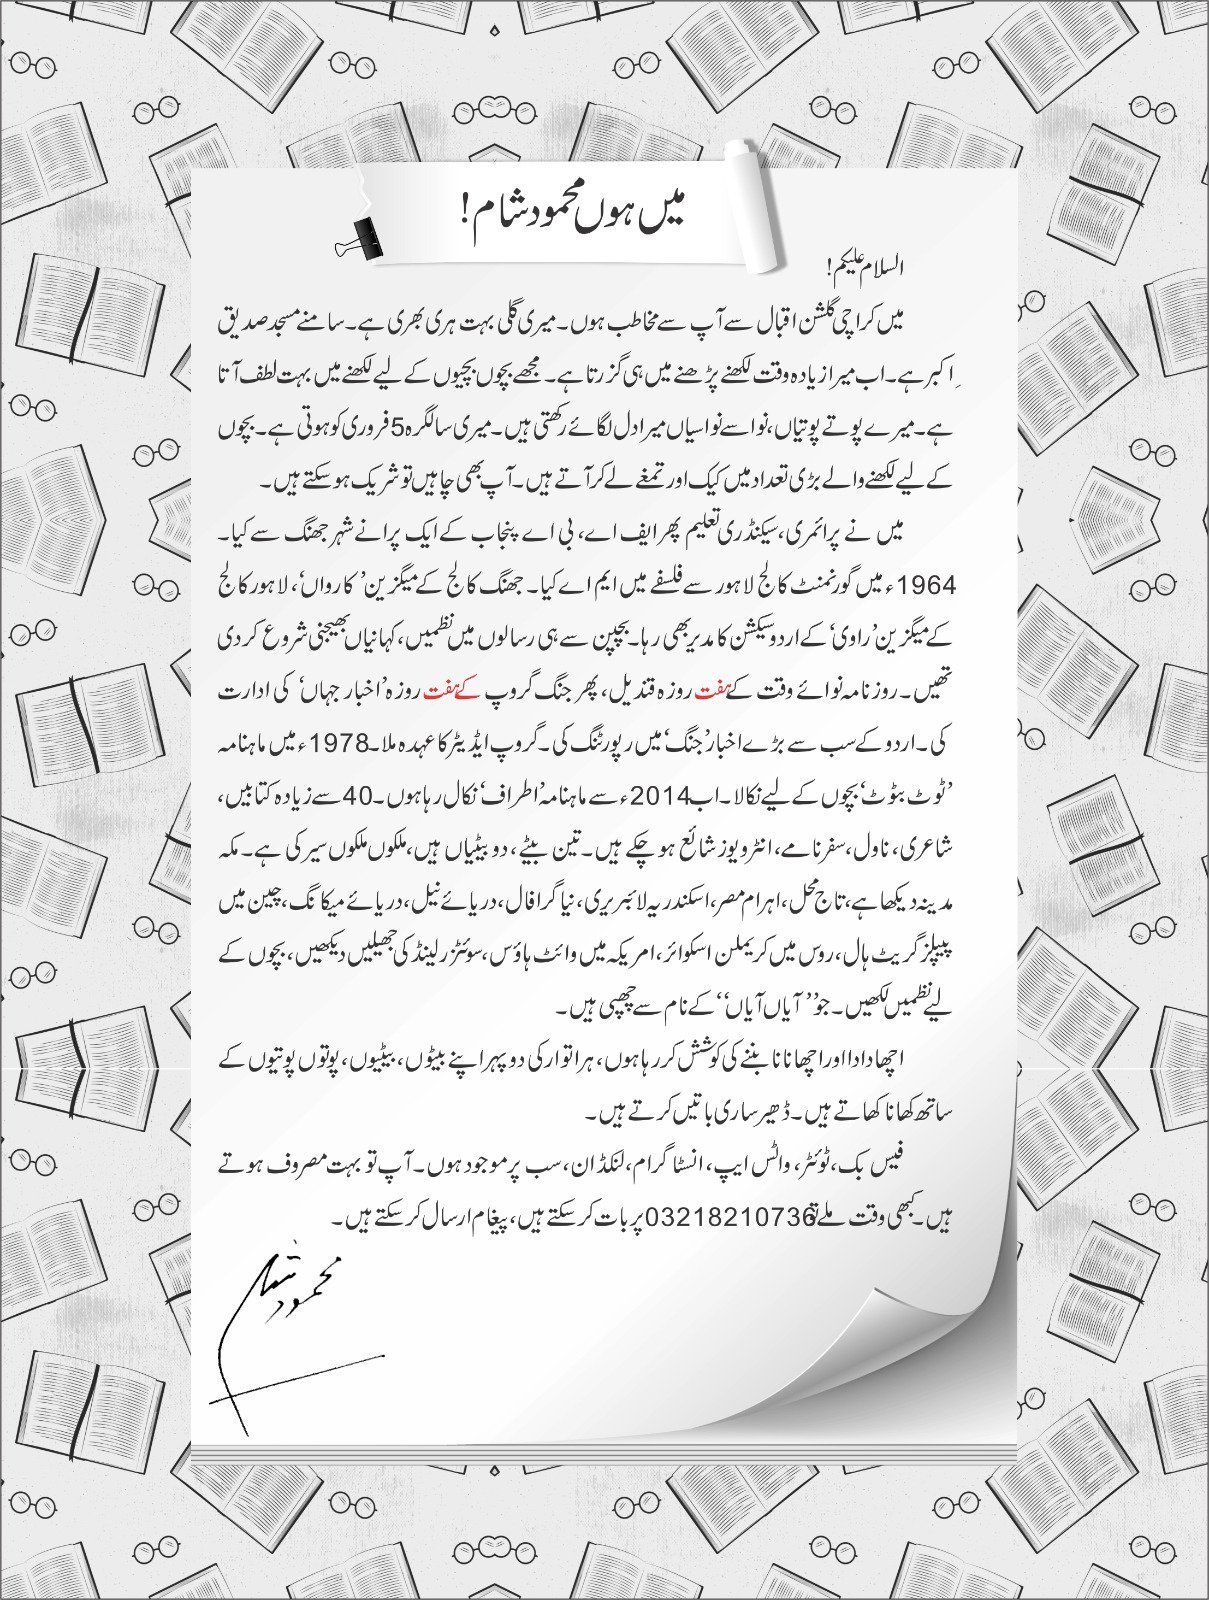 میں ہوں محمود شام!
السلام علیکم!
میں کراچی گلشن اقبال سے آپ سے مخاطب ہوں۔ میری گلی بہت ہری بھری ہے۔ سامنے مسجد صدیق
ِاکبر ہے۔ اب میرا زیادہ وقت لکھنے پڑھنے میں ہی گزرتا ہے۔ مجھے بچوں بچیوں کے لیے لکھنے میں بہت لطف آتا
ہے۔ میرے پوتے پوتیاں، نواسے نواسیاں میرا دل لگائے رکھتی ہیں۔ میری سالگرہ 5 فروری کو ہوتی ہے۔ بچوں
کے لیے لکھنے والے بڑی تعداد میں کیک اور تمغے لے کر آتے ہیں۔ آپ بھی چاہیں تو شریک ہوسکتے ہیں۔
میں نے پرائمری، سیکنڈری تعلیم پھر ایف اے، بی اے پنجاب کے ایک پرانے شہر جھنگ سے کیا۔
1964ء میں گورنمنٹ کالج لاہور سے فلسفے میں ایم اے کیا۔ جھنگ کالج کے میگزین ’کارواں‘، لاہور کالج
کے میگزین ’راوی‘ کے اردو سیکشن کا مدیر بھی رہا۔ بچپن سے ہی رسالوں میں نظمیں، کہانیاں بھیجنی شروع کردی
تھیں۔ روزنامہ نوائے وقت کے ہفت روزہ قندیل، پھر جنگ گروپ کے ہفت روزہ ’اخبار جہاں‘ کی ادارت
کی۔ اردو کے سب سے بڑے اخبار ’جنگ‘ میں رپورٹنگ کی۔ گروپ ایڈیٹر کا عہدہ ملا۔ 1978ء میں ماہنامہ
’ٹوٹ بٹوٹ‘ بچوں کے لیے نکالا۔ اب 2014ء سے ماہنامہ ’اطراف‘ نکال رہا ہوں۔ 40 سے زیادہ کتابیں،
شاعری، ناول، سفرنامے، انٹرویوز شائع ہوچکے ہیں۔ تین بیٹے، دو بیٹیاں ہیں، ملکوں ملکوں سیر کی ہے۔ مکہ
مدینہ دیکھا ہے، تاج محل، اہرام مصر، اسکندریہ لائبریری، نیاگرا فال، دریائے نیل، دریائے میکانگ، چین میں
پیپلز گریٹ ہال، روس میں کریملن اسکوائر، امریکہ میں وائٹ ہاؤس، سوئٹزرلینڈ کی جھیلیں دیکھیں، بچوں کے
لیے نظمیں لکھیں۔ جو’’ آیاں آیاں‘‘ کے نام سے چھپی ہیں۔
اچھا دادا اور اچھا نانا بننے کی کوشش کررہا ہوں، ہر اتوار کی دوپہر اپنے بیٹوں، بیٹیوں، پوتوں پوتیوں کے
ساتھ کھانا کھاتے ہیں۔ ڈھیر ساری باتیں کرتے ہیں۔
فیس بک، ٹوئٹر، واٹس ایپ، انسٹاگرام، لنکڈ ان، سب پر موجود ہوں۔ آپ تو بہت مصروف ہوتے
ہیں۔ کبھی وقت ملے تو 03218210736 پر بات کرسکتے ہیں، پیغام ارسال کرسکتے ہیں۔
محمود شام